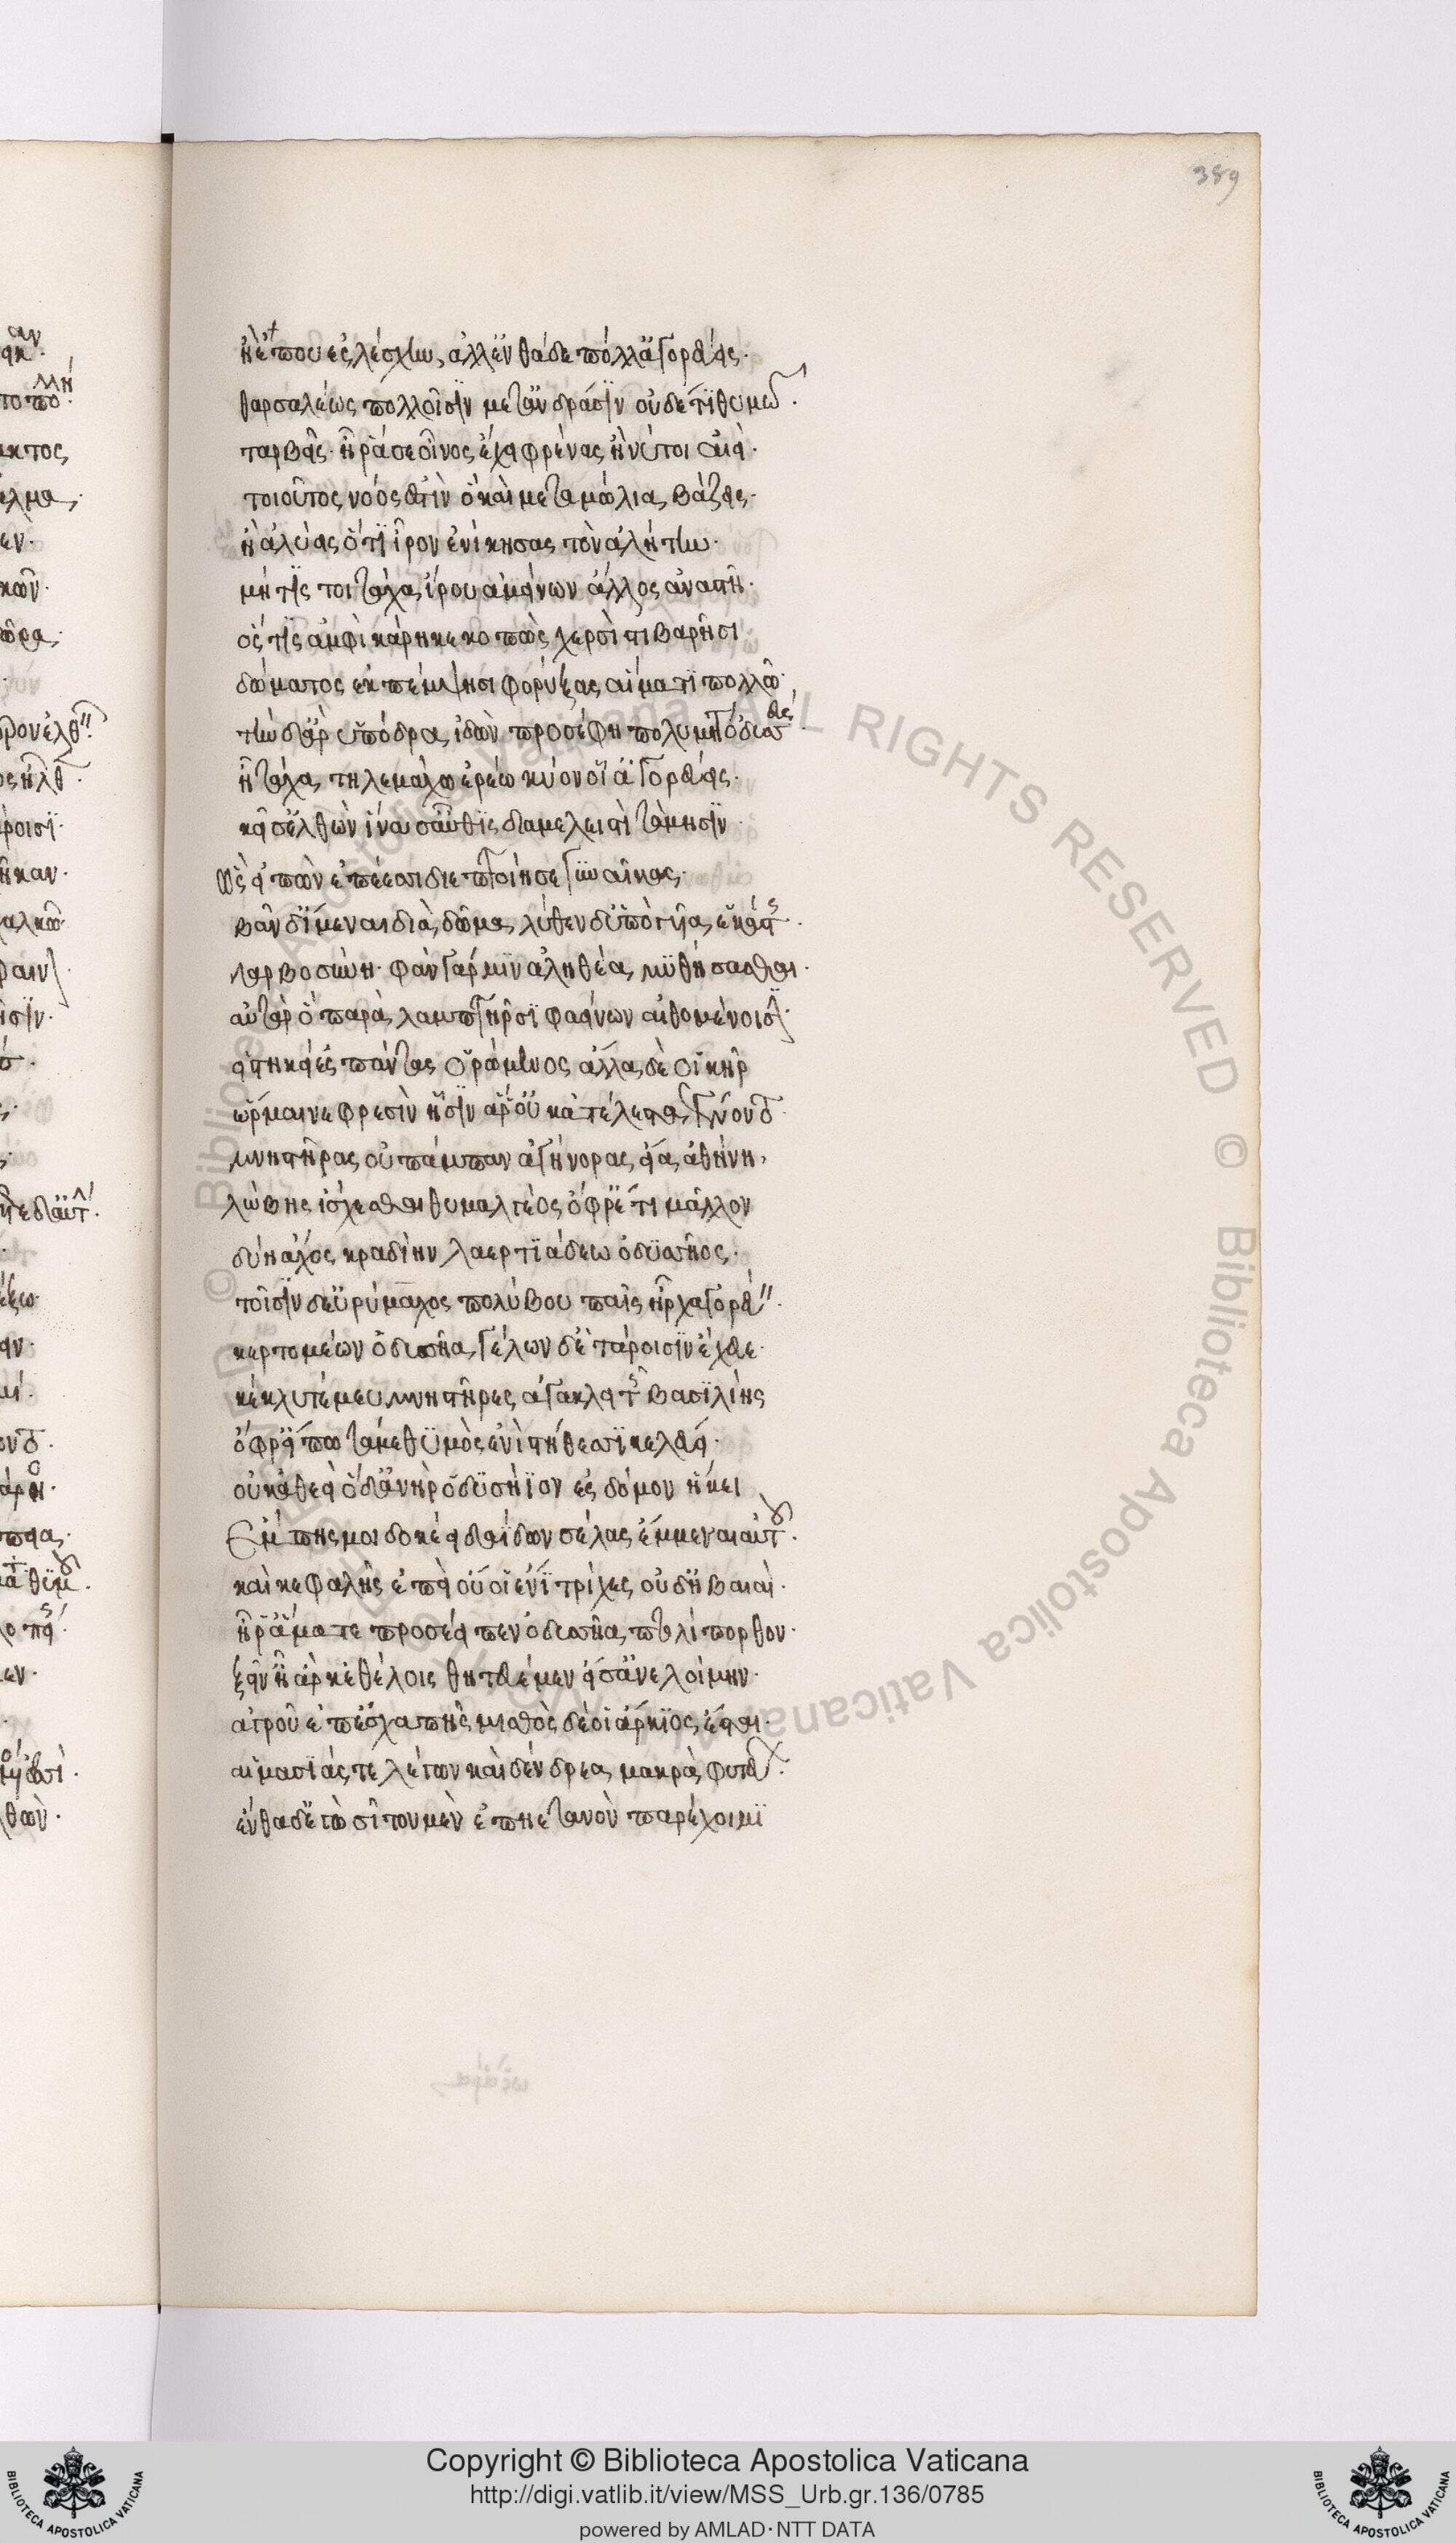 389
ἠέ που ἐς λέσχην, ἀλλ' ἐνθάδε πόλλ' ἀγορεύεις·
θαρσαλέως πολλοῖσιν μετ' ἀνδράσιν οὐδέ τι θυμῶ·
ταρβεῖς· ἦ ῥά σε οἶνος ἔχει φρένας ἤ νύ τοι αἰεὶ·
τοιοῦτος νόος ἐστὶν ὃ καὶ μεταμώλια βάζεις·
ἢ ἀλύεις ὅτι ἶρον ἐνίκησας τὸν ἀλήτην·
μή τίς τοι τάχα ἴρου ἀμείνων ἄλλος ἀναστῆ·
ὅς τίς σ' ἀμφὶ κάρη κεκοπὼς χερσὶ στιβαρῆσι
δώματος ἐκπέμψησι φορύξας αἵματι πολλῶ·
τὴν δ' ἄρ' ὑπόδρα ἰδὼν προσέφη πολύμητις ὀδυσσεύς·
ἦ τάχα τηλεμάχω ἐρέω κύον οἷ' ἀγορεύεις·
κεῖσ' ἐλθὼν ἵνα σ' αὖθι διαμελεϊστὶ τάμησιν·
ὣς εἰπὼν ἐπέεσσι διεπτοίησε γυναῖκας·
βὰν δ' ἴμεναι διὰ δῶμα λύθεν δ' ὑπὸ γυῖα ἑκάστης·
ταρβοσύνη· φὰν γάρ μιν ἀληθέα μυθήσασθαι·
αὐτὰρ ὃ παρὰ λαμπτῆρσι φαείνων αἰθομένοισιν·
εἱστήκει ἐς πάντας ὁρώμενος ἄλλα δέ οἱ κῆρ
ὥρμαινε φρεσὶν ᾗσιν ἅ ῥ' οὐκ ἀτέλεστα γένοντο·
μνηστῆρας δ' οὐ πάμπαν ἀγήνορας εἴα ἀθήνη·
λώβης ἴσχεσθαι θυμαλγέος ὄφρ' ἔτι μᾶλλον
δύη ἄχος κραδίην λαερτιάδεω ὀδυσσῆος·
τοῖσιν δ' εὐρύμαχος πολύβου παῖς ἦρχ' ἀγορεύειν·
κερτομέων ὀδυσῆα γέλων δ' ἑτάροισιν ἔτευχε·
κέκλυτέ μευ μνηστῆρες ἀγακλειτῆς βασιλίης
ὄφρ' εἴπω τά με θυμὸς ἐνὶ στήθεσσι κελεύει·
οὐκ ἀθεεὶ ὅδ' ἀνὴρ ὀδυσήϊον ἐς δόμον ἥκει
Ἔμπης μοι δοκέει δαΐδων σέλας ἔμμεναι αὐτοῦ·
καὶ κεφαλῆς ἐπεὶ οὔ οἱ ἔνι τρίχες οὐδ' ἠβαιαί·
ἦ ῥ' ἅμα τε προσέειπεν ὀδυσσῆα πτολίπορθον·
ξεῖν' ἦ ἄρ κ' ἐθέλοις θητευέμεν εἴ σ' ἀνελοίμην·
ἀγροῦ ἐπ' ἐσχατιῆς μισθὸς δέ οἱ ἄρκιος ἔσται·
αἱμασιάς τε λέγων καὶ δένδρεα μακρὰ φυτεύων·
ἔνθα δ' ἐγὼ σῖτον μὲν ἐπηετανὸν παρέχοιμι
Copyright © Biblioteca Apostolica Vaticana
http://digi.vatlib.it/view/MSS_Urb.gr.136/0785
powered by AMLAD·NTT DATA